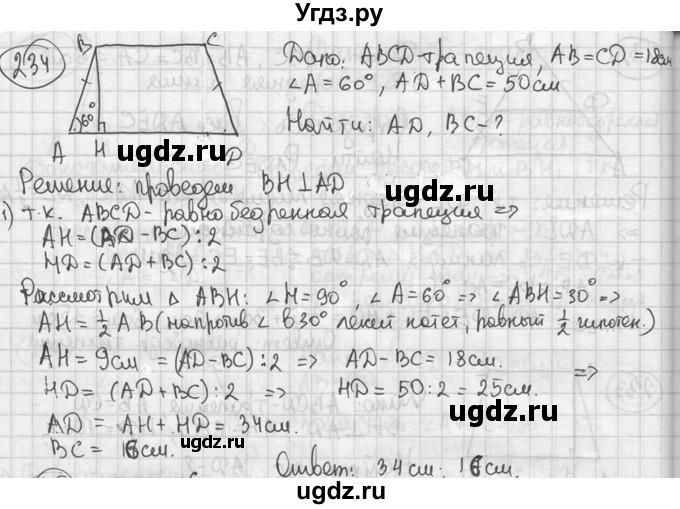 Угдз.ру
234
B C
Дано: ABCD-трапеция, AB=CD=18см
∠A=60°, AD+BC=50см
60°
Найти: AD, BC-?
A H D
ugdz.ru ugdz.ru
Решение: проведем BH⊥AD
1) т.к. ABCD- равнобедренная трапеция =>
AH=(AD-BC):2
HD=(AD+BC):2
ugdz.ru
Рассмотрим Δ ABH: ∠H=90°, ∠A=60° => ∠ABH=30° =>
AH=½AB(напротив ∠ в 30° лежит катет, равный ½ гипотен.)
AH=9см =(AD-BC):2 => AD-BC=18см.
HD=(AD+BC):2 => HD=50:2=25см. =>
ugdz.ru
AD=AH+HD=34см.
BC=16см.
ugdz.ru
Ответ: 34см; 16см.
ugdz.ru